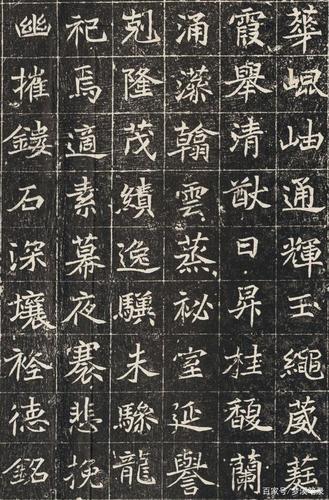 華崐岫通輝玉繩葳蕤
霞舉清猷日昇桂馥蘭
涌藻翰雲蒸祕室延譽
剋隆茂績逸驥未驂龍
祀焉適素幕夜褰悲挽
幽摧鏤石深壤德銘
百家号/